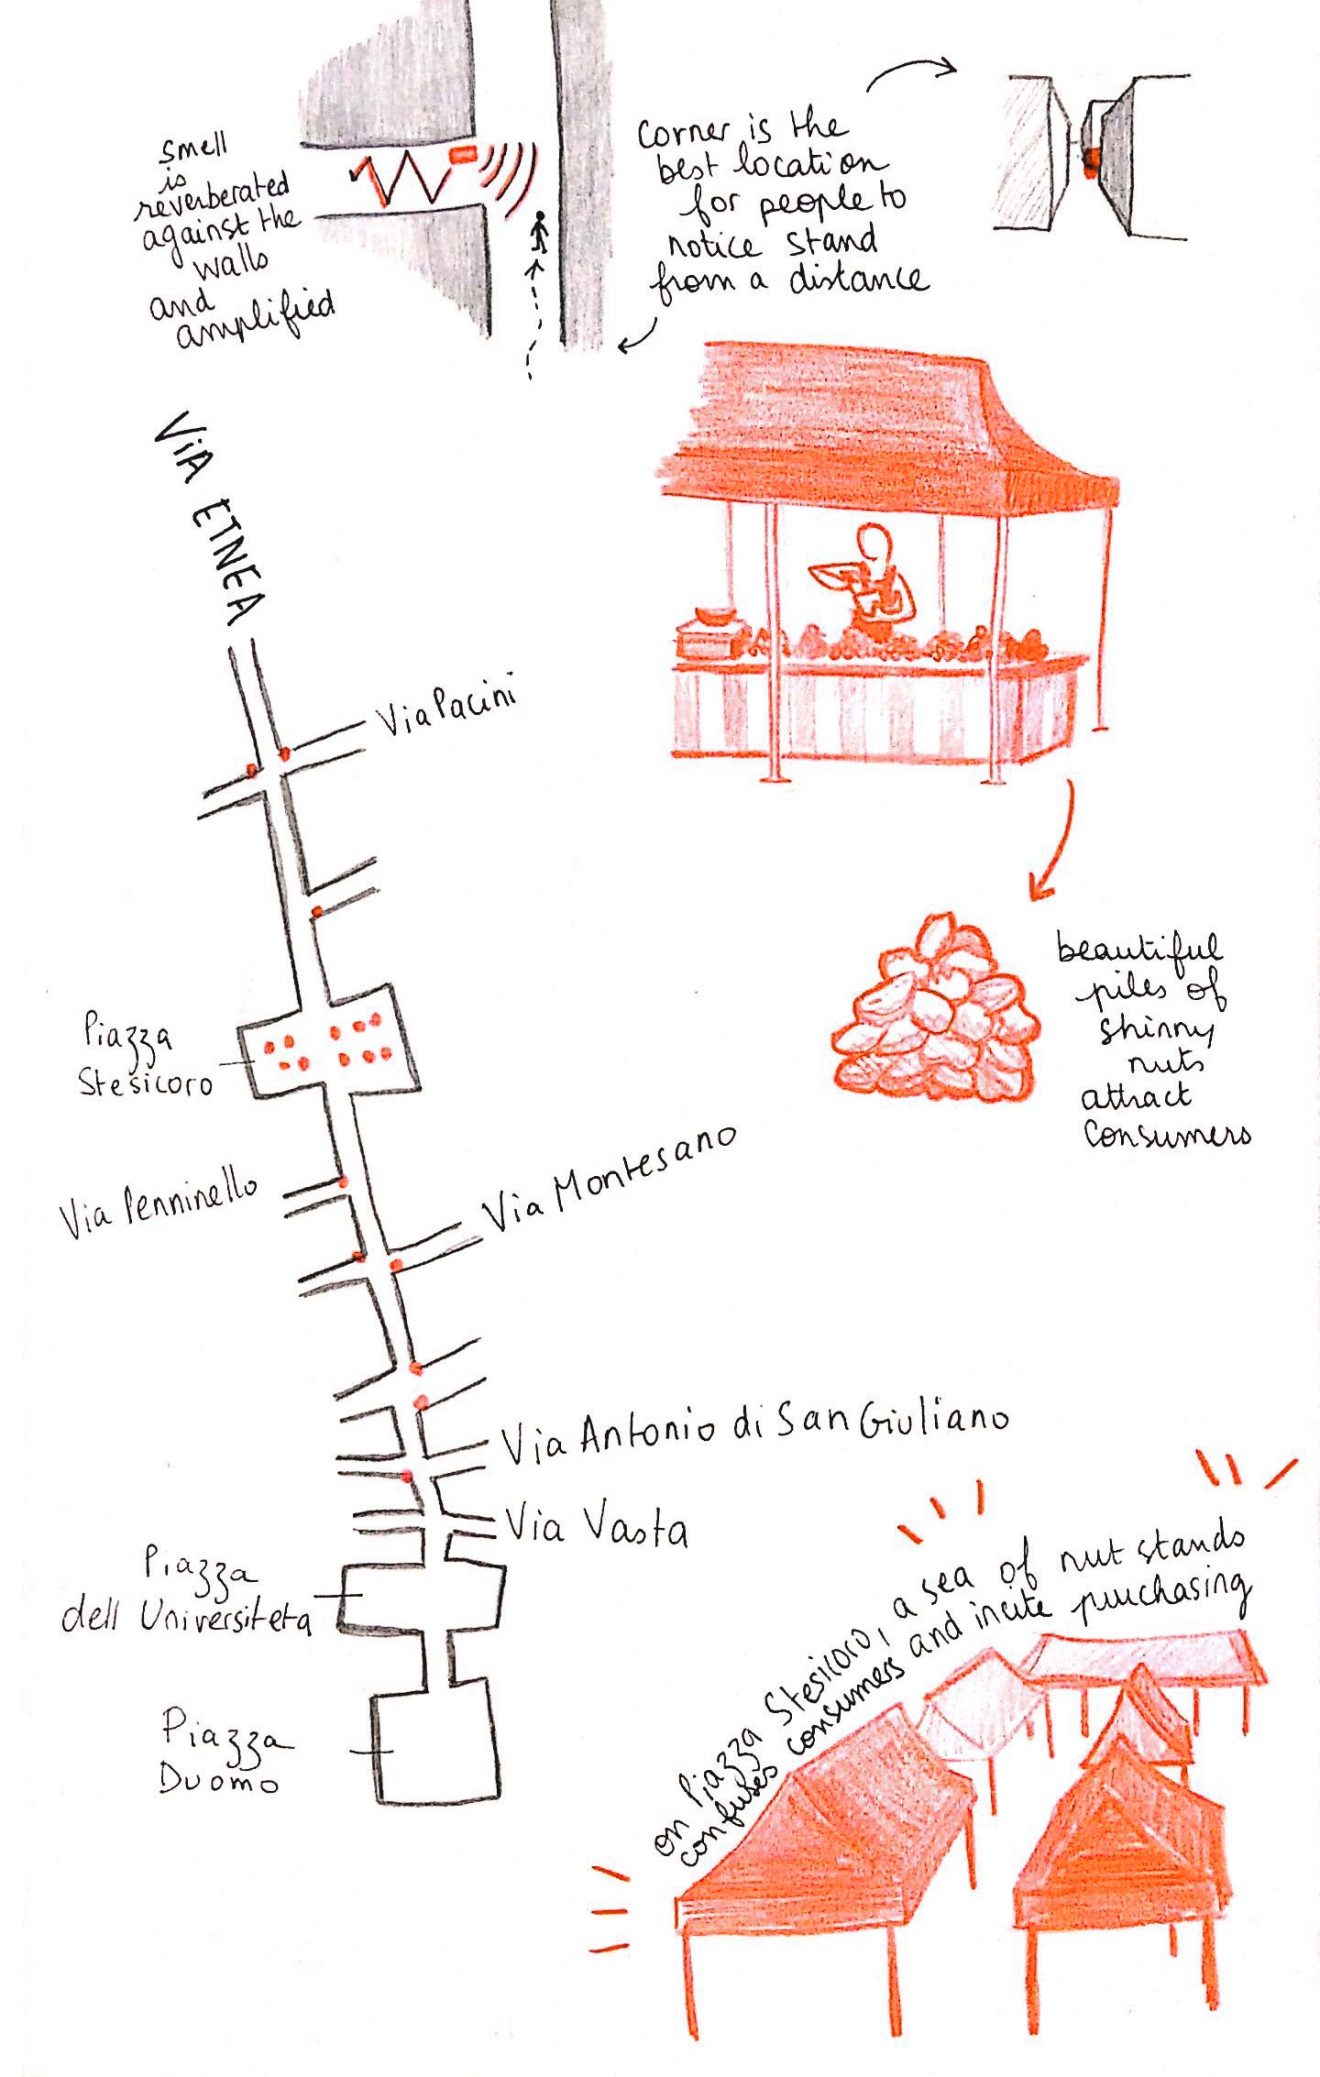 smell
is
reverberated
against the
walls
and
amplified
corner is the
best location
for people to
notice stand
from a distance
VIA ETNEA
Via Pacini
Piazza
Stesicoro
beautiful
piles of
shinny
nuts
attract
consumers
Via Penninello
Via Montesano
Via Antonio di San Giuliano
Via Vasta
Piazza
dell Universiteta
Piazza
Duomo
on Piazza Stesicoro, a sea of nut stands
confuses consumers and incite purchasing